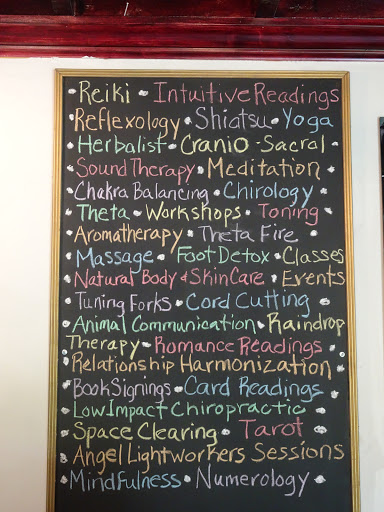 • Reiki • Intuitive Readings
Reflexology • Shiatsu • Yoga
• Herbalist • Cranio-Sacral
• Sound Therapy • Meditation •
• Chakra Balancing • Chirology •
• Theta • Workshops • Toning •
Aromatherapy • Theta Fire •
• Massage • Foot Detox • Classes
• Natural Body & Skin Care • Events
• Tuning Forks • Cord Cutting •
• Animal Communication • Raindrop
Therapy • Romance Readings •
• Relationship Harmonization
• Book Signings • Card Readings •
• Low Impact Chiropractic •
• Space Clearing • Tarot •
• Angel Lightworkers Sessions
• Mindfulness • Numerology •